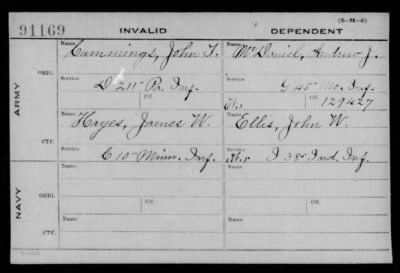 (3-H-5)
91169 INVALID DEPENDENT
Name Cummings, John T. Name McDaniel, Andrew J.
ORIG. Service D 211" Pa. Inf. Service G 45" Mo. Inf.
ARMY
Ctf. Ctf. 129227
Name Hayes, James W. Name Ellis, John W.
CTF. Service C 10" Minn. Inf. I 38" Ind. Inf.
Name Name
ORIG. Service Ctf. Service Ctf.
NAVY
Name Name
CTF.